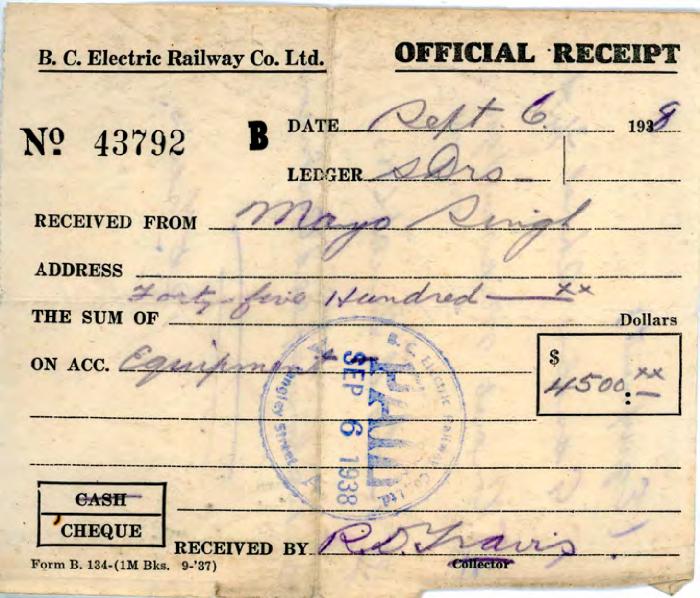 B. C. Electric Railway Co. Ltd. OFFICIAL RECEIPT
No 43792 B DATE Sept 6 1938
LEDGER S Drs
RECEIVED FROM Mayo Singh
ADDRESS
Forty-five Hundred xx
THE SUM OF Dollars
ON ACC. Equipment $ 4500:xx
B. C. Electric Railway Co. Ltd.
PAID
SEP 6 1938
Langley Street
CASH
CHEQUE
RECEIVED BY R.D. Travis
Form B. 134-(1M Bks. 9-'37) Collector